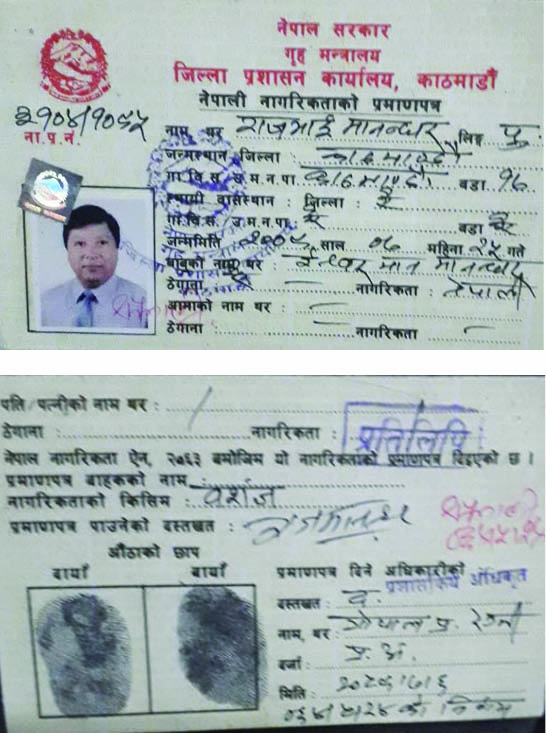 नेपाल सरकार
गृह मन्त्रालय
जिल्ला प्रशासन कार्यालय, काठमाडौं
नेपाली नागरिकताको प्रमाणपत्र
ना.प्र.नं.
नाम थर राजभाई मानन्धर लिङ्ग पु
जन्मस्थान जिल्ला : काठमाण्डौ
गा.वि.स. उ.म.न.पा. काठमाण्डौ वडा १७
स्थायी वासस्थान : जिल्ला : ऐ
गा.वि.स. / उ.म.न.पा. ऐ वडा ऐ
जन्ममिति साल महिना २५ गते
बाबुको नाम थर ईश्वर मान मानन्धर
ठेगाना नागरिकता : नेपाली
आमाको नाम थर :
ठेगाना : नागरिकता :
पति/पत्नीको नाम थर :
ठेगाना : नागरिकता :
प्रतिलिपि
नेपाल नागरिकता ऐन, २०६३ बमोजिम यो नागरिकताको प्रमाणपत्र दिइएको छ ।
प्रमाणपत्र बाहकको नाम :
नागरिकताको किसिम : वंशज
प्रमाणपत्र पाउनेको दस्तखत :
औंठाको छाप
दायाँ बायाँ
प्रमाणपत्र दिने अधिकारीको
प्रशासकिय अधिकृत
दस्तखत :
नाम, थर : गोपाल प्र.
दर्जा : प्र. अ.
मिति :